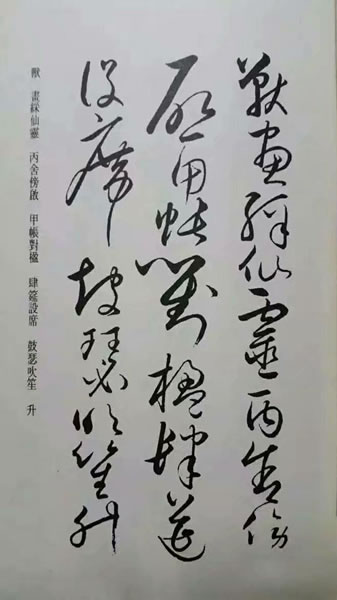 獸畫綵仙靈丙舍傍
啟甲帳對楹肆筵
設席鼓瑟吹笙升
獸 畫綵仙靈 丙舍傍啟 甲帳對楹 肆筵設席 鼓瑟吹笙 升